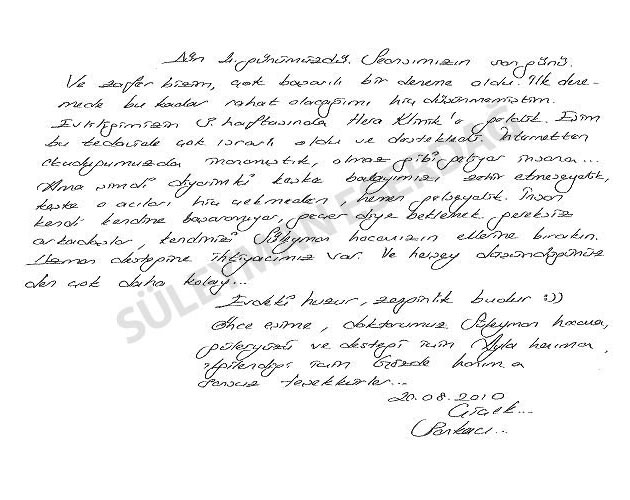 Dün 4. günümüzdü. Seansımızın son günü.
Ve zafer bizim, çok başarılı bir deneme oldu. İlk dene-
mede bu kadar rahat olacağımı hiç düşünmemiştim.
Evliliğimizin 5. haftasında Hera Klinik'e geldik. Eşim
bu tedavide çok ısrarlı oldu ve destekledi. İnternetten
Okuduğumuzda inanamıştık, olmaz gibi geliyor insana...
Ama şimdi diyorumki keşke balayımızı zehir etmeseydik,
keşke o acıları hiç çekmeden hemen gelseydik. İnsan
kendi kendine başaramıyor, geçer diye beklemek gereksiz
arkadaşlar, kendinizi Süleyman hocamızın ellerine bırakın.
Uzman desteğine ihtiyacımız var. Ve herşey düşündüğünüz
den çok daha kolay...
Evdeki huzur, zenginlik budur :))
Önce eşime, doktorumuz Süleyman hocama,
güleryüzü ve desteği için Ayla hanıma,
ilgilendiği için Gözde hanıma
Sonsuz teşekkürler...
20.08.2010
Çiçek...
SÜLEYMAN ESERDAĞ